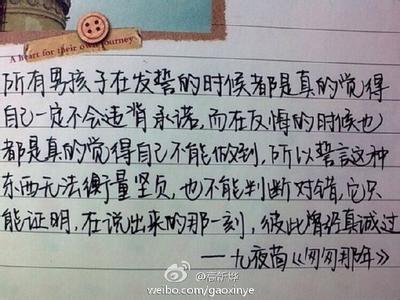 A heart for their own journey.
所有男孩子在发誓的时候都是真的觉得
自己一定不会违背承诺,而在反悔的时候也
都是真的觉得自己不能做到,所以誓言这种
东西无法衡量坚贞,也不能判断对错,它只
能证明,在说出来的那一刻,彼此曾经真诚过
——九夜茴《匆匆那年》
@高新烨
weibo.com/gaoxinye